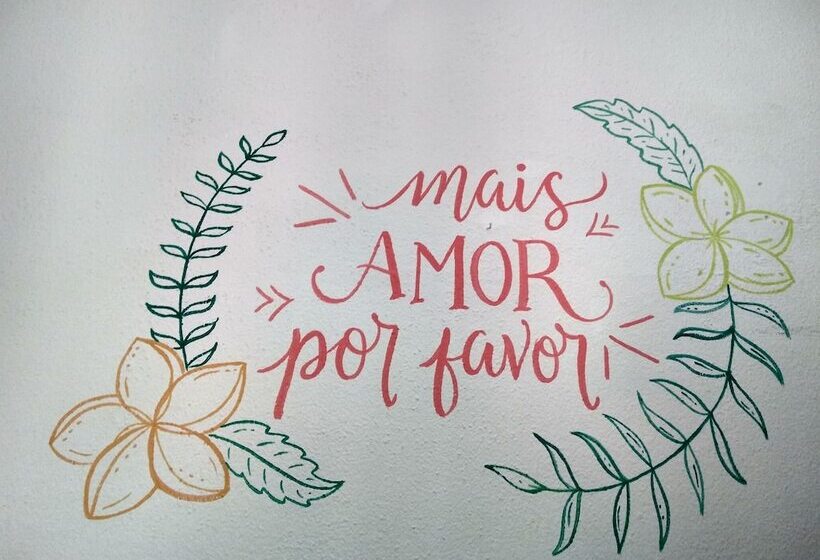 mais
AMOR
por favor